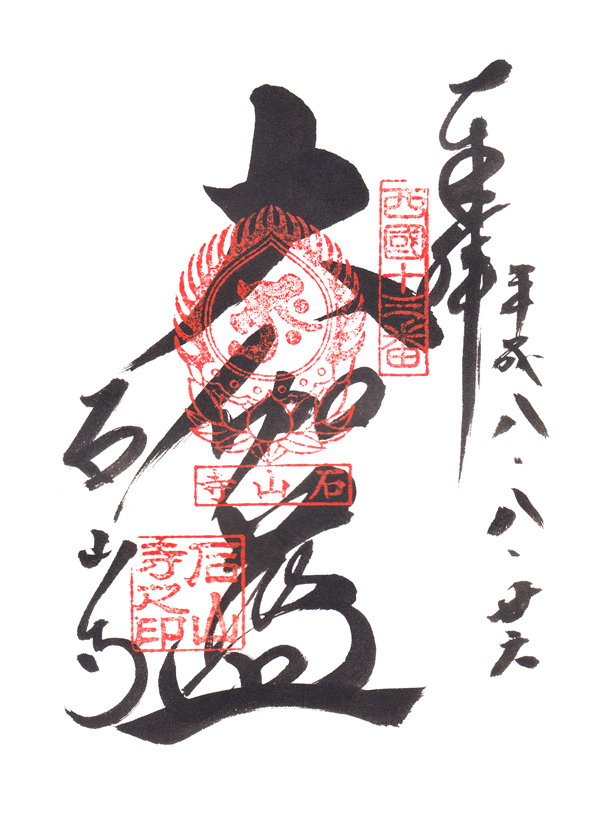 奉拝
平成八、八、廿六
西國十三番
大伽藍
石山寺
石山寺
石山寺之印